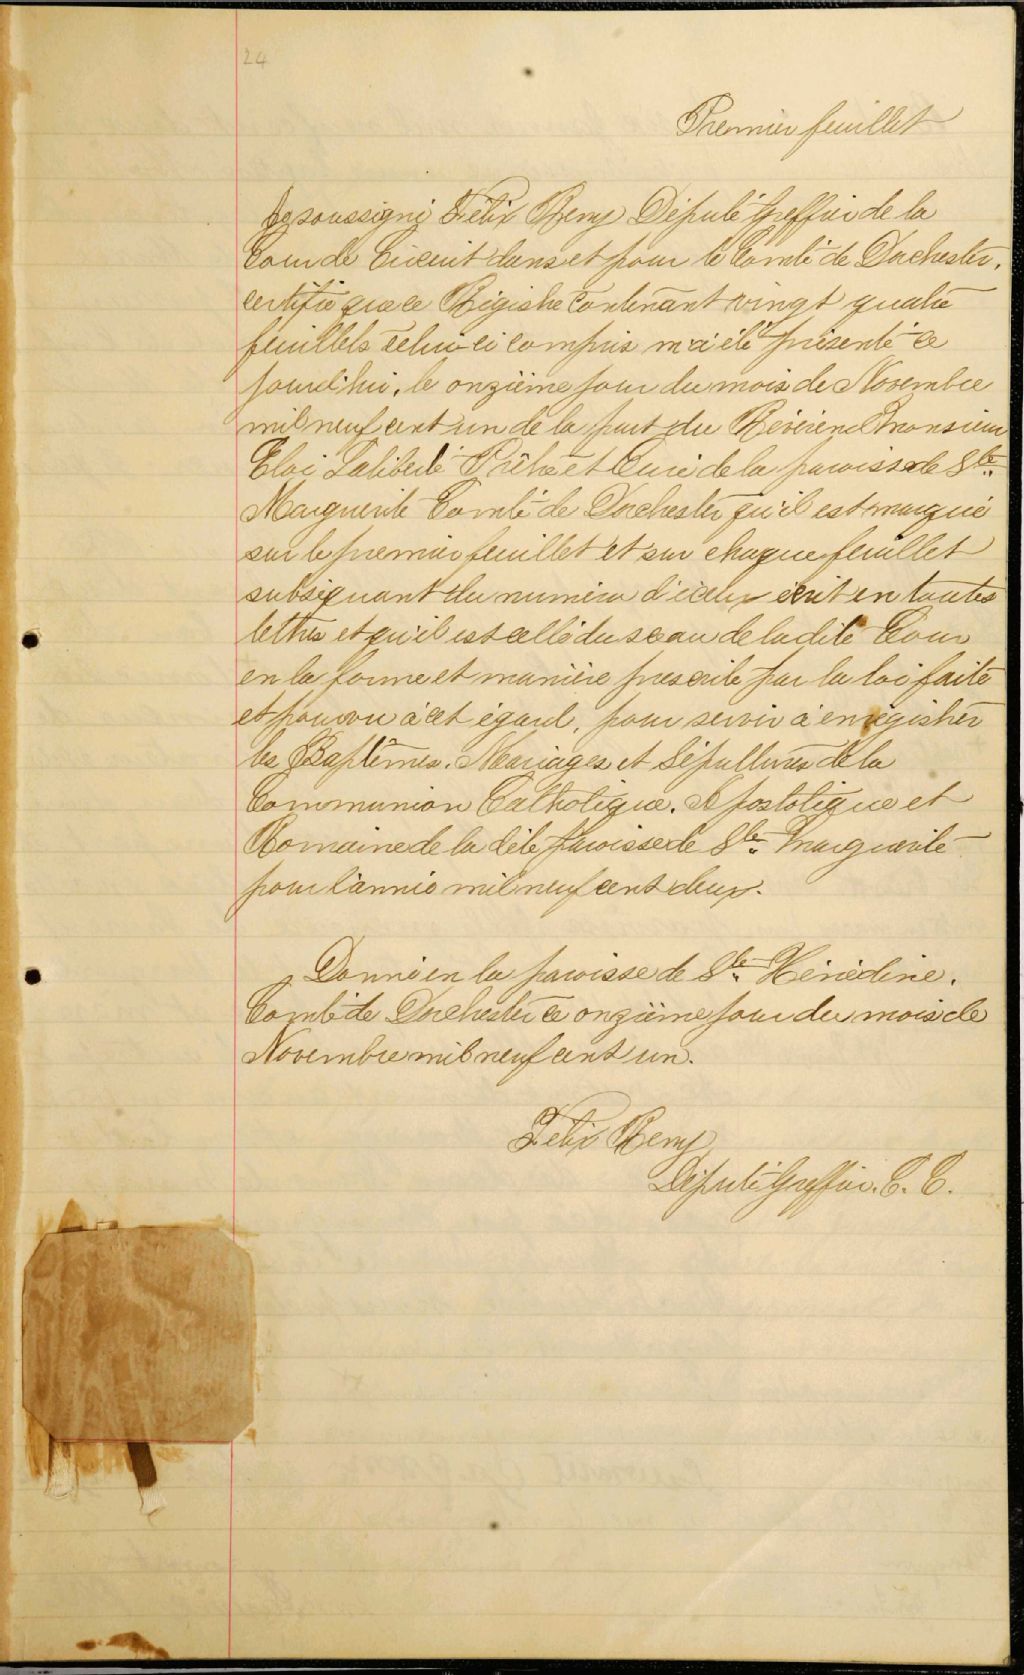 24
Premier feuillet
Le soussigné Félix Remy Député Greffier de la
Cour de Circuit dans et pour le Comté de Dorchester,
certifie que ce Régistre contenant vingt quatre
feuillets celui-ci compris m'a été présenté ce
jourd'hui, le onzième jour du mois de Novembre
mil neuf cent un de la part du Révérend Monsieur
Eloi Laliberté Prêtre et Curé de la paroisse de Ste
Marguerite Comté de Dorchester qu'il est marqué
sur le premier feuillet et sur chaque feuillet
subséquant du numéro d'iceux écrit en toutes
lettres et qu'il est cellé du sceau de ladite Cour
en la forme et manière prescrite par la loi faite
et pourvu à cet égard, pour servir à enrégistrer
les Baptêmes, Mariages et Sépultures de la
Communion Catholique, Apostolique et
Romaine de la dite paroisse de Ste Marguerite
pour l'année mil neuf cent deux.
Donné en la paroisse de Ste Hénédine,
Comté de Dorchester ce onzième jour du mois de
Novembre mil neuf cent un.
Félix Remy
Député Greffier. C. C.